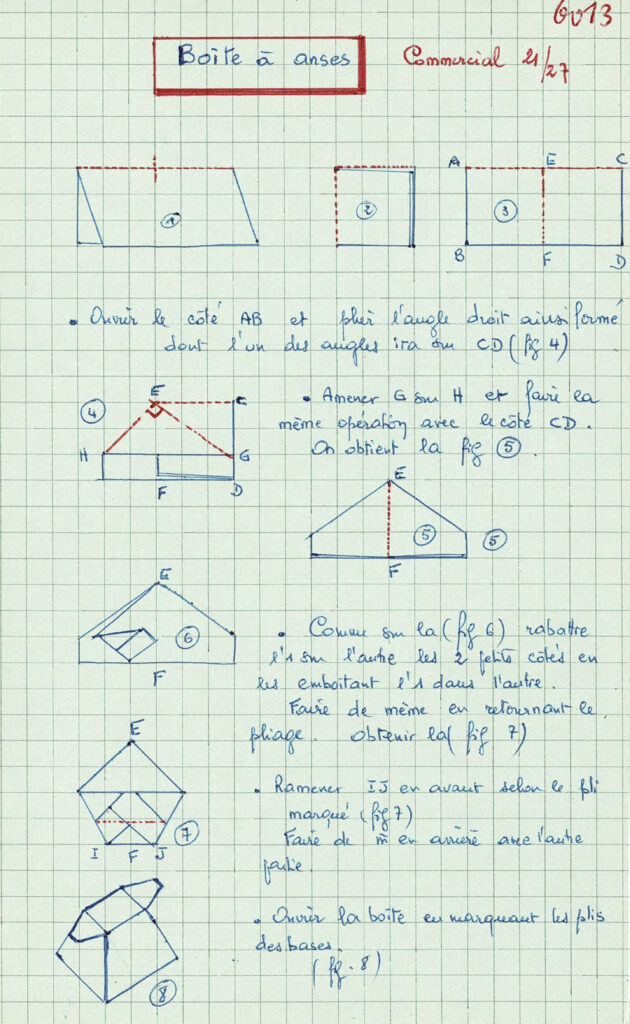 6013
Boîte à anses
Commercial 21/27
1
2
A E C
3
B F D
• Ouvrir le côté AB et plier l'angle droit ainsi formé
dont l'un des angles ira sur CD (fig 4)
4
E C
H G
F D
• Amener G sur H et faire la
même opération avec le côté CD.
On obtient la fig 5.
E
5 5
F
E
6
F
• Comme sur la (fig 6) rabattre
l'1 sur l'autre les 2 petits côtés en
les emboitant l'1 dans l'autre.
Faire de même en retournant le
pliage. Obtenir la (fig 7)
E
7
I F J
• Ramener IJ en avant selon le pli
marqué (fig 7)
Faire de m̄ en arrière avec l'autre
partie.
• Ouvrir la boîte en marquant les plis
des bases.
(fig. 8)
8